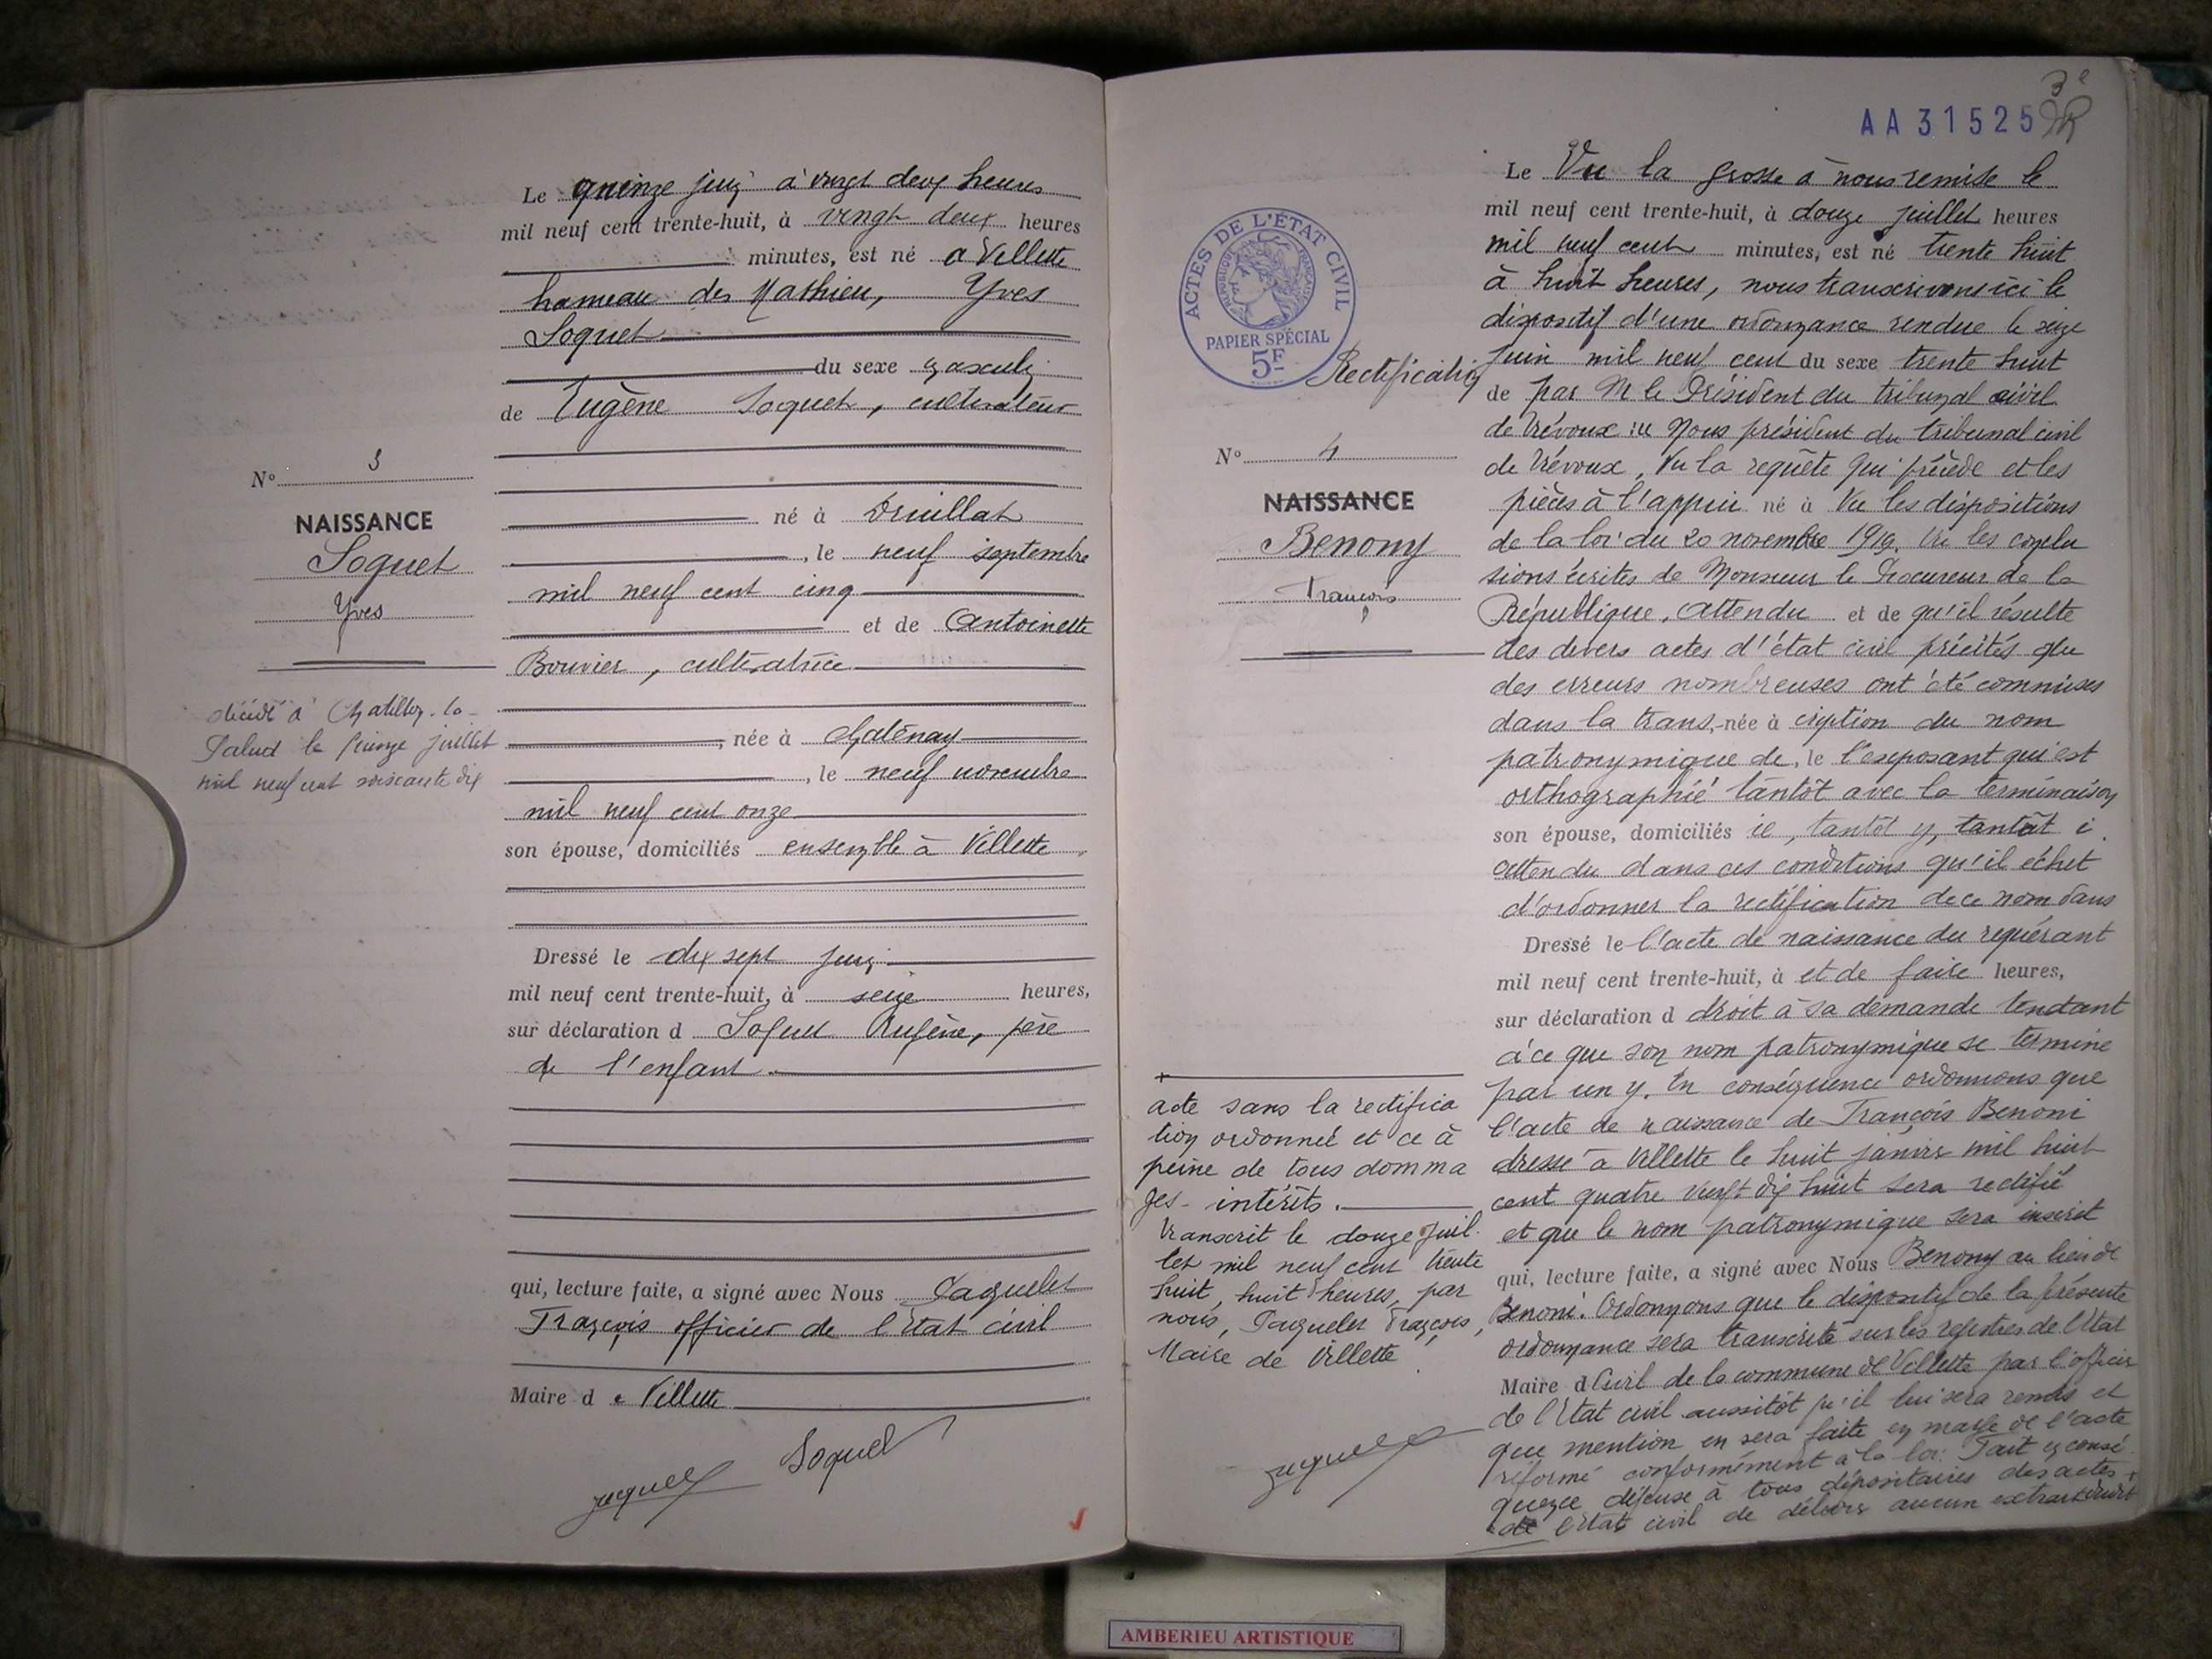 Le quinze juin à vingt deux heures
mil neuf cent trente-huit, à vingt deux heures
minutes, est né à Villette
hameau des Mathieu, Yves
Soquet
du sexe masculin
de Eugène Soquet, cultivateur
né à Druillat
, le neuf septembre
mil neuf cent cinq
et de Antoinette
Bouvier, cultivatrice
, née à Chatenay
, le neuf novembre
mil neuf cent onze
son épouse, domiciliés ensemble à Villette
Dressé le dix sept juin
mil neuf cent trente-huit, à seize heures,
sur déclaration d Soquet Eugène, père
de l'enfant.
qui, lecture faite, a signé avec Nous Jaquelet
François officier de l'état civil
Maire d e Villette
Soquet
N° 3
NAISSANCE
Soquet
Yves
décédé à Chatillon-la-
Palud le quinze juillet
mil neuf cent soixante dix
3e
AA31525
ACTES DE L'ÉTAT CIVIL
RÉPUBLIQUE FRANÇAISE
PAPIER SPÉCIAL
5F
Rectification
N° 4
NAISSANCE
Benony
François
Le Vu la grosse à nous remise le
mil neuf cent trente-huit, à douze juillet heures
mil neuf cent minutes, est né trente huit
à huit heures, nous transcrivons ici le
dispositif d'une ordonnance rendue le seize
Juin mil neuf cent du sexe trente huit
de par M le Président du tribunal civil
de Trévoux : "Nous président du tribunal civil
de Trévoux, Vu la requête qui précède et les
pièces à l'appui né à Vu les dispositions
de la loi du 20 novembre 1919. Vu les conclu
sions écrites de Monsieur le Procureur de la
République, Attendu et de qu'il résulte
des divers actes d'état civil précités que
des erreurs nombreuses ont été commises
dans la trans, née à cription du nom
patronymique de, le l'exposant qui est
orthographié tantôt avec la terminaison
son épouse, domiciliés ie, tantôt y, tantôt i.
Attendu dans ces conditions qu'il échet
d'ordonner la rectification de ce nom dans
Dressé le l'acte de naissance du requérant
mil neuf cent trente-huit, à et de faire heures,
sur déclaration d droit à sa demande tendant
à ce que son nom patronymique se termine
par un y. En conséquence ordonnons que
l'acte de naissance de François Benoni
dressé à Villette le huit janvier mil huit
cent quatre vingt dix huit sera rectifié
et que le nom patronymique sera inscrit
qui, lecture faite, a signé avec Nous Benony au lieu de
Benoni. Ordonnons que le dispositif de la présente
ordonnance sera transcrite sur les registres de l'Etat
Maire d Civil de la commune de Villette par l'officier
de l'Etat civil aussitôt qu'il lui sera remis et
que mention en sera faite en marge de l'acte
réformé conformément à la loi. Fait en consé
quence défense à tous dépositaires des actes +
de l'Etat civil de délivrer aucun extrait dudit
+
acte sans la rectifica
tion ordonnée et ce à
peine de tous domma
ges-intérêts.
Transcrit le douze juil
let mil neuf cent trente
huit, huit heures, par
nous, Jaquelet François,
Maire de Villette
AMBERIEU ARTISTIQUE